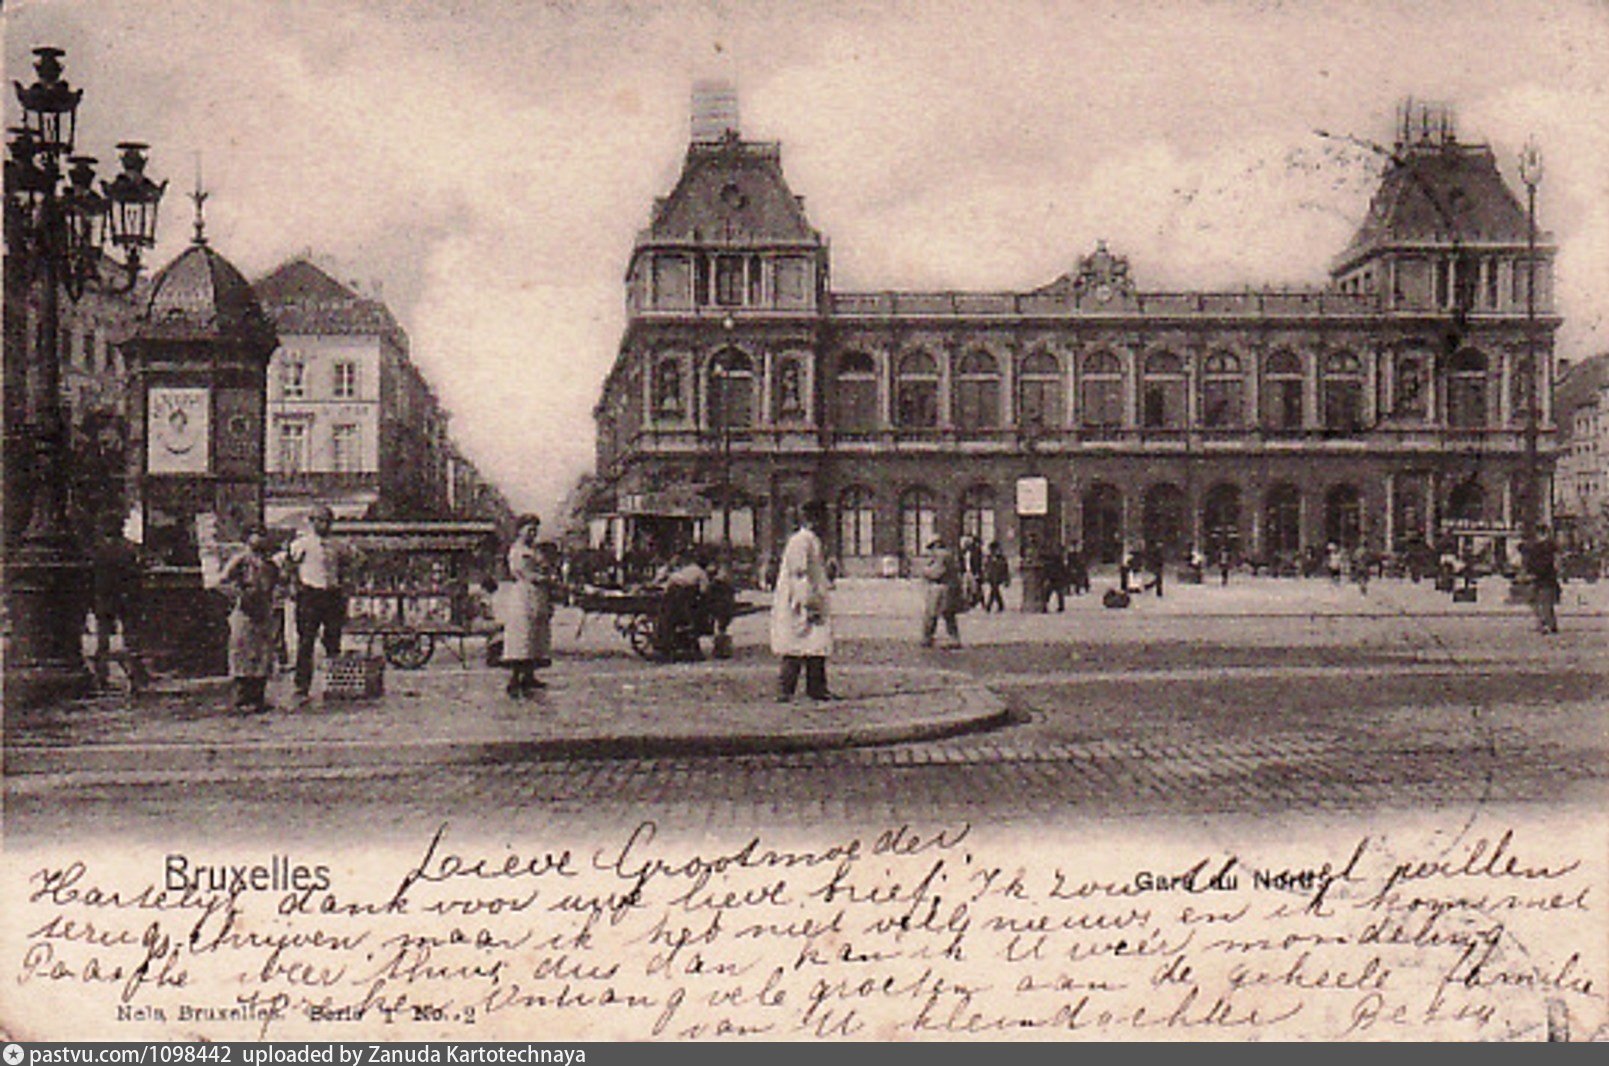 Bruxelles
Gare du Nord
Lieve Grootmoeder,
Hartelijk dank voor uwe lieve brief. Ik zou U wel willen
terugschrijven, maar ik heb niet veel nieuws, en ik kom met
Paasche weer thuis, dus dan kan ik U weer mondeling
spreken. Ontvang vele groeten aan de geheele familie
van U kleindochter
Nels, Bruxelles. Serie 1 No. 2
pastvu.com/1098442 uploaded by Zanuda Kartotechnaya